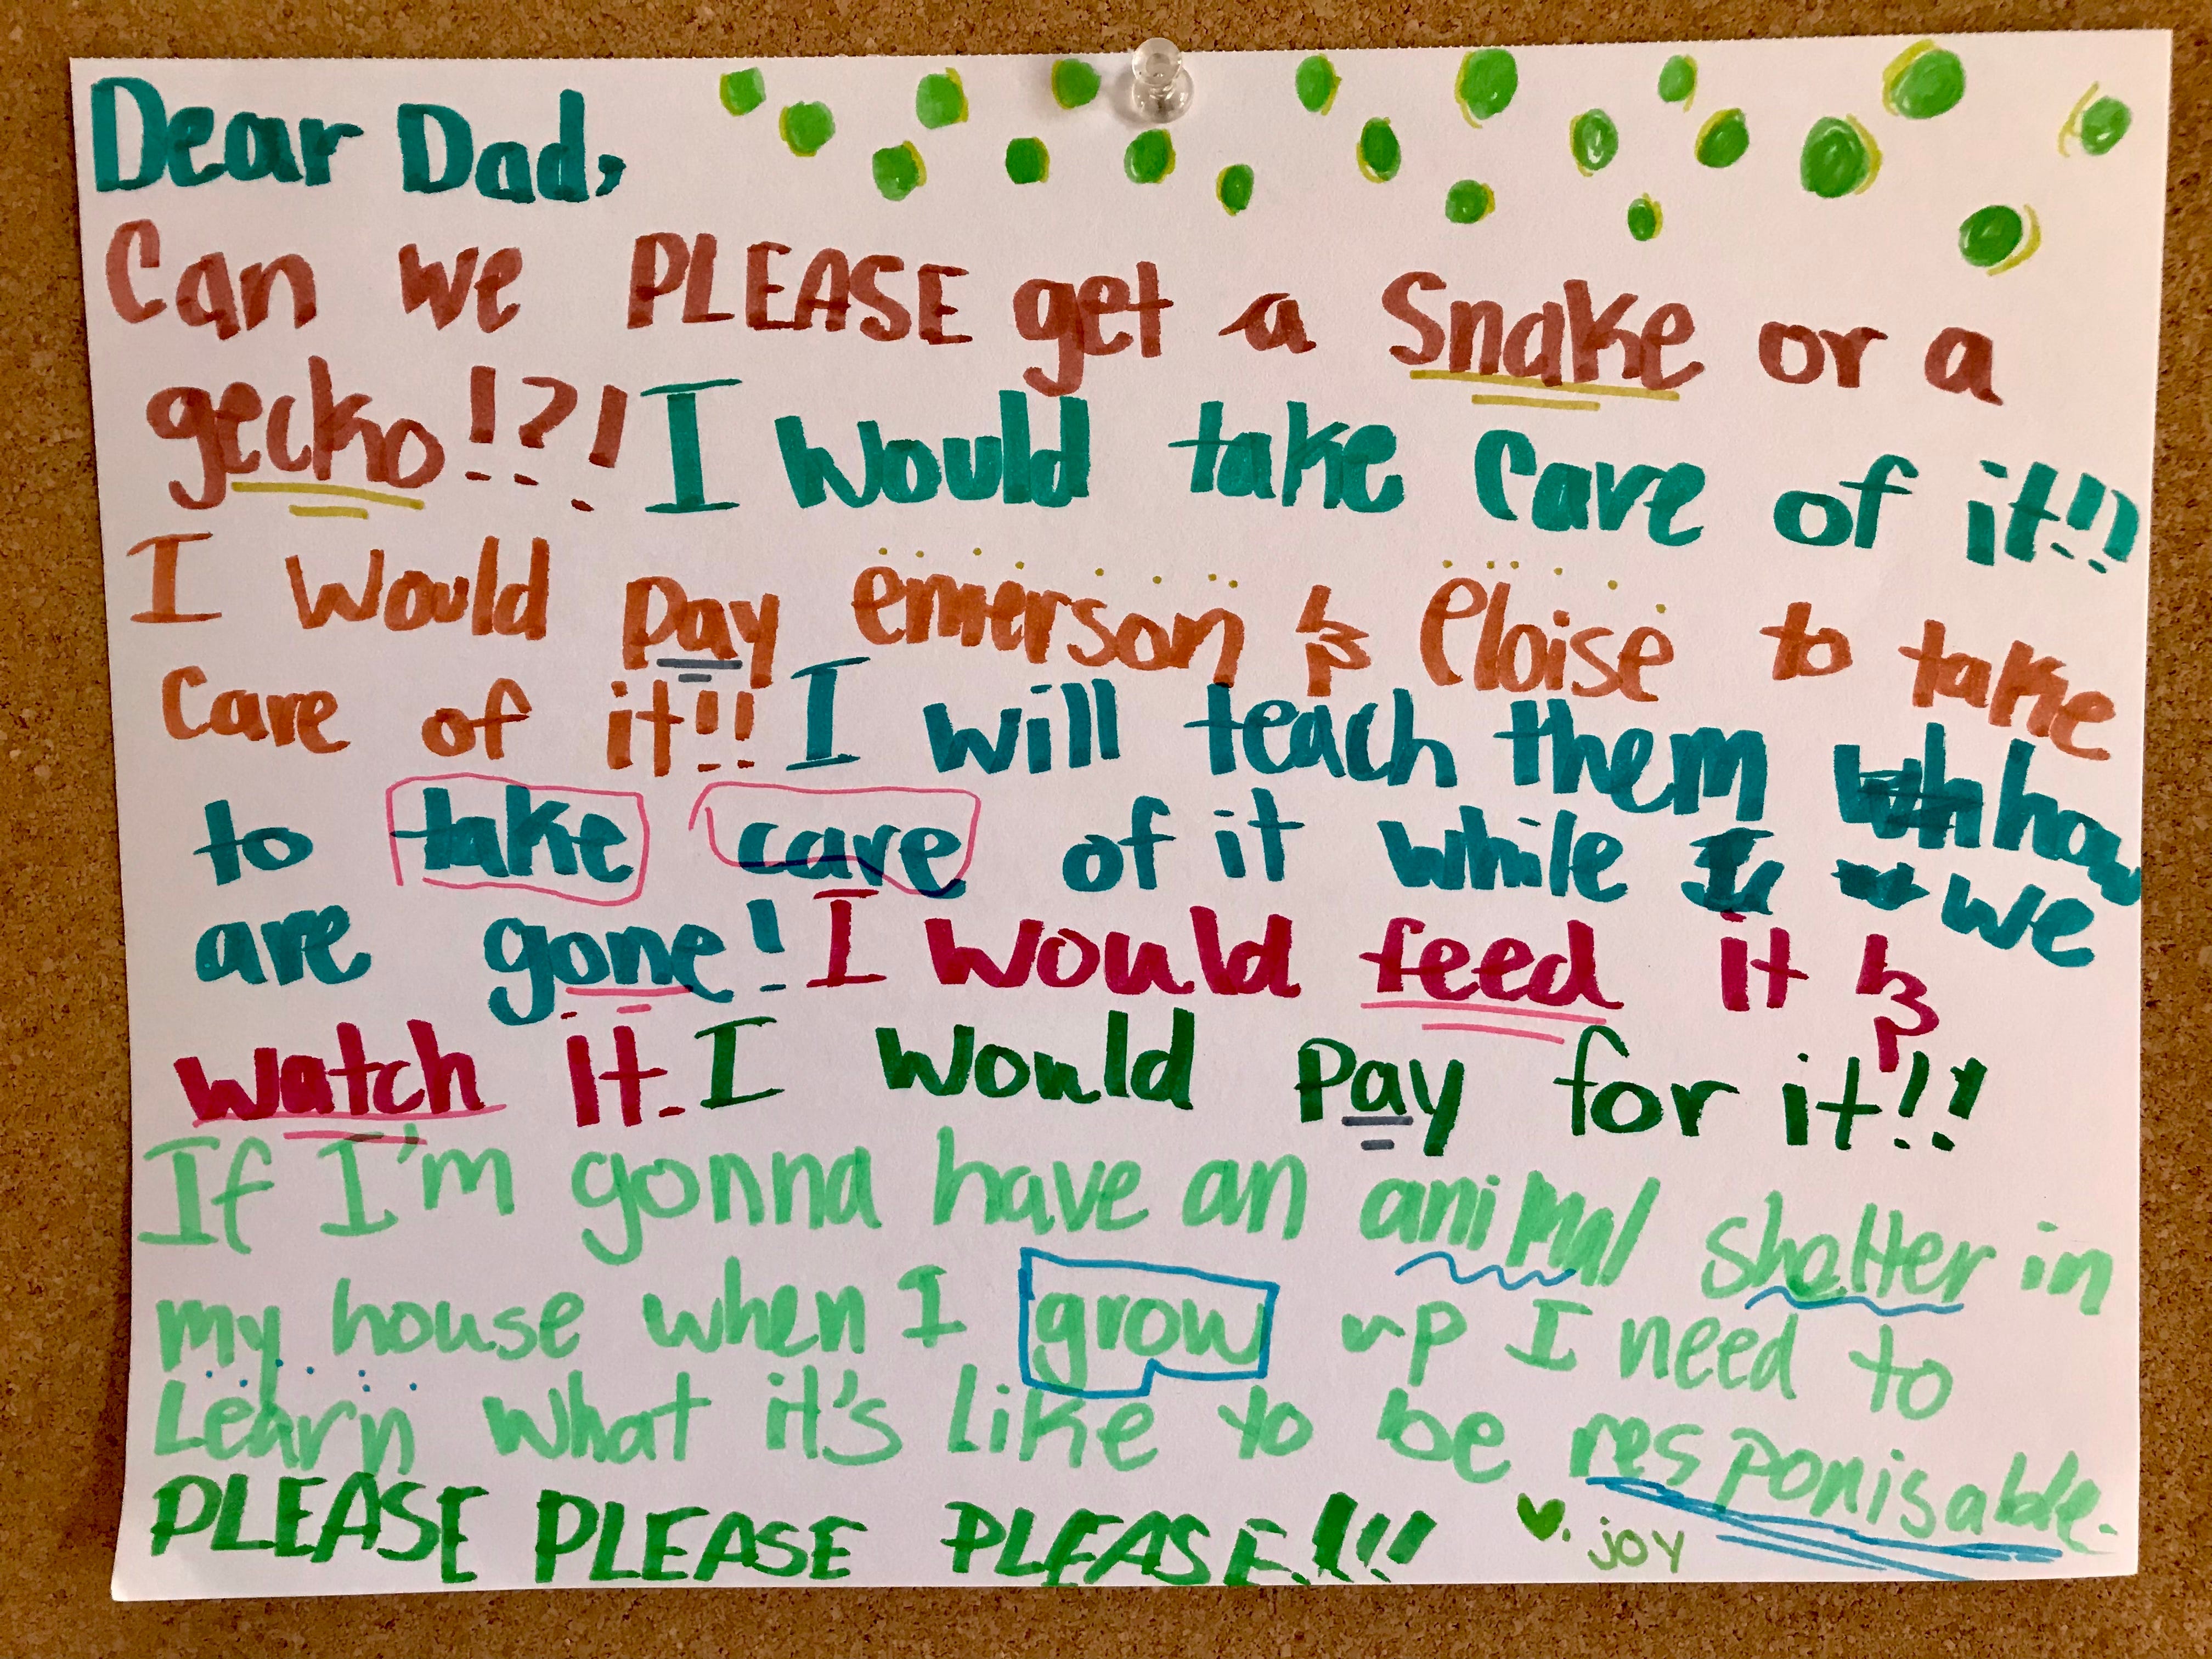 Dear Dad,
Can we PLEASE get a Snake or a
gecko!?! I would take care of it!!
I would pay emerson & eloise to take
care of it!! I will teach them how
to take care of it while we
are gone! I would feed it &
watch it. I would pay for it!!
If I'm gonna have an animal shelter in
my house when I grow up I need to
Learn what it's like to be responisable.
PLEASE PLEASE PLEASE!!!
joy